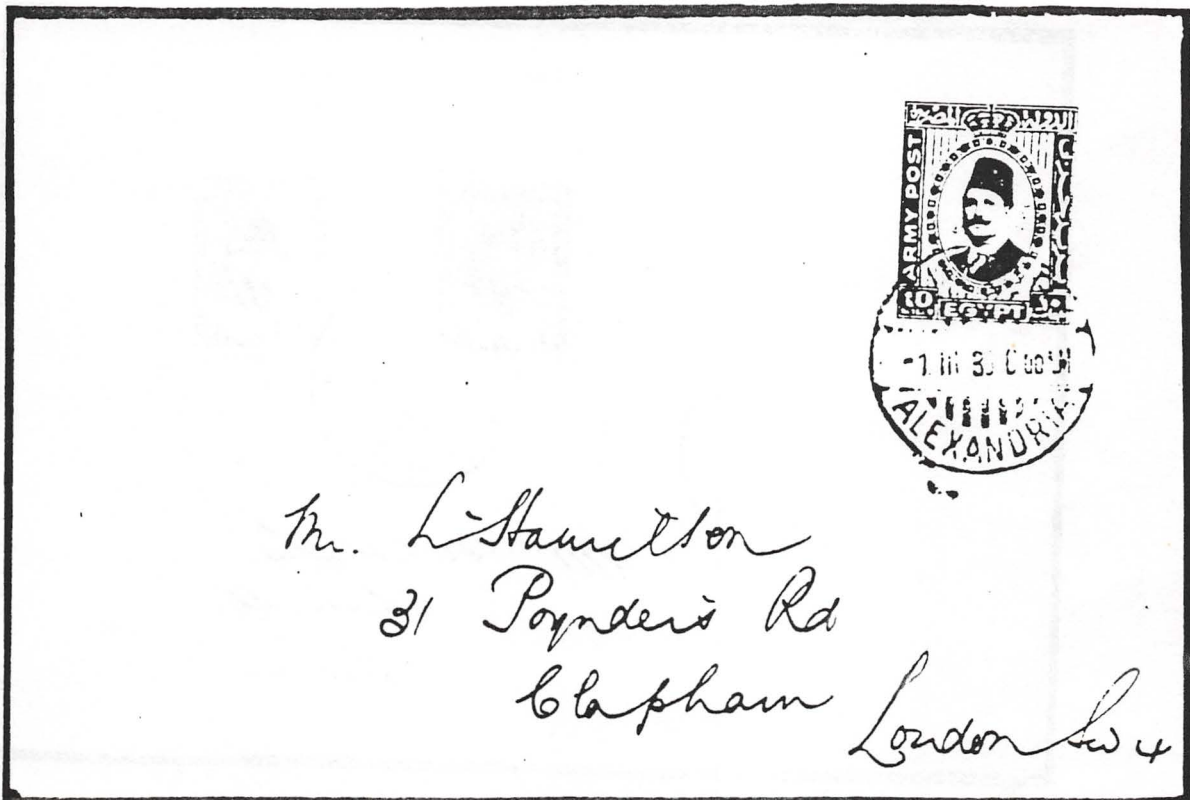 ARMY POST
10
EGYPT
ALEXANDRIA
Mr. L. Hamilton
31 Poynders Rd
Clapham
London SW4